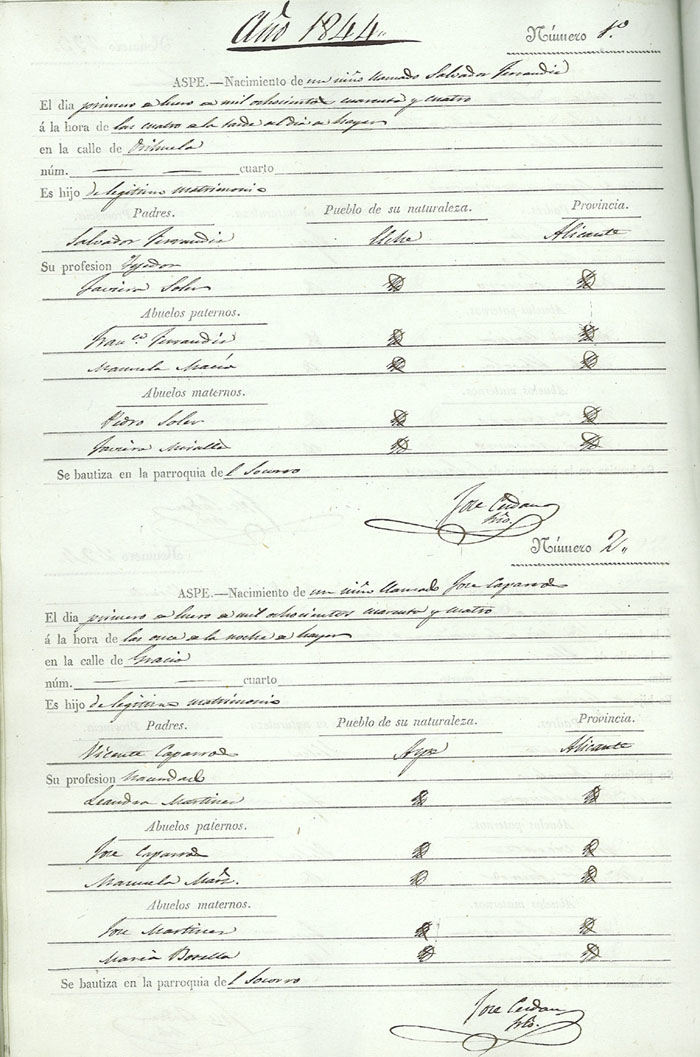 Año 1844
Número 1º
ASPE.—Nacimiento de un niño llamado Salvador Ferrandis
El dia primero de Enero de mil ochocientos cuarenta y cuatro
á la hora de las cuatro de la tarde del dia de hayer
en la calle de Orihuela
núm. — — cuarto
Es hijo de legitimo matrimonio
Padres. Pueblo de su naturaleza. Provincia.
Salvador Ferrandis Elche Alicante
Su profesion Tejedor
Javiera Soler
Abuelos paternos.
Franco. Ferrandis
Manuela Macia
Abuelos maternos.
Pedro Soler
Javiera Miralles
Se bautiza en la parroquia del Socorro
Jose Cerdan
Número 2
ASPE.—Nacimiento de un niño llamado Jose Caparros
El dia primero de Enero de mil ochocientos cuarenta y cuatro
á la hora de las once de la noche de hayer
en la calle de Gracia
núm. — — cuarto
Es hijo de legitimo matrimonio
Padres. Pueblo de su naturaleza. Provincia.
Vicente Caparros Aspe Alicante
Su profesion
Leandra Martinez
Abuelos paternos.
Jose Caparros
Manuela
Abuelos maternos.
Jose Martinez
Maria Botella
Se bautiza en la parroquia del Socorro
Jose Cerdan